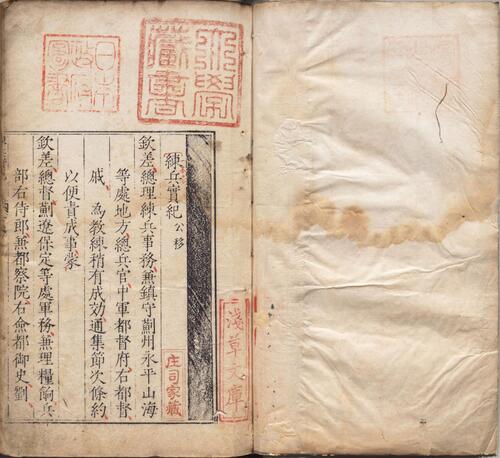 大學藏書
日本政府圖書
淺草文庫
庄司家藏
練兵實紀 公移
欽差總理練兵事務兼鎮守薊州永平山海
等處地方總兵官中軍都督府右都督
戚 為教練稍有成効通集節次條約
以便責成事蒙
欽差總督薊遼保定等處軍務兼理糧餉兵
部右侍郎兼都察院右僉都御史劉